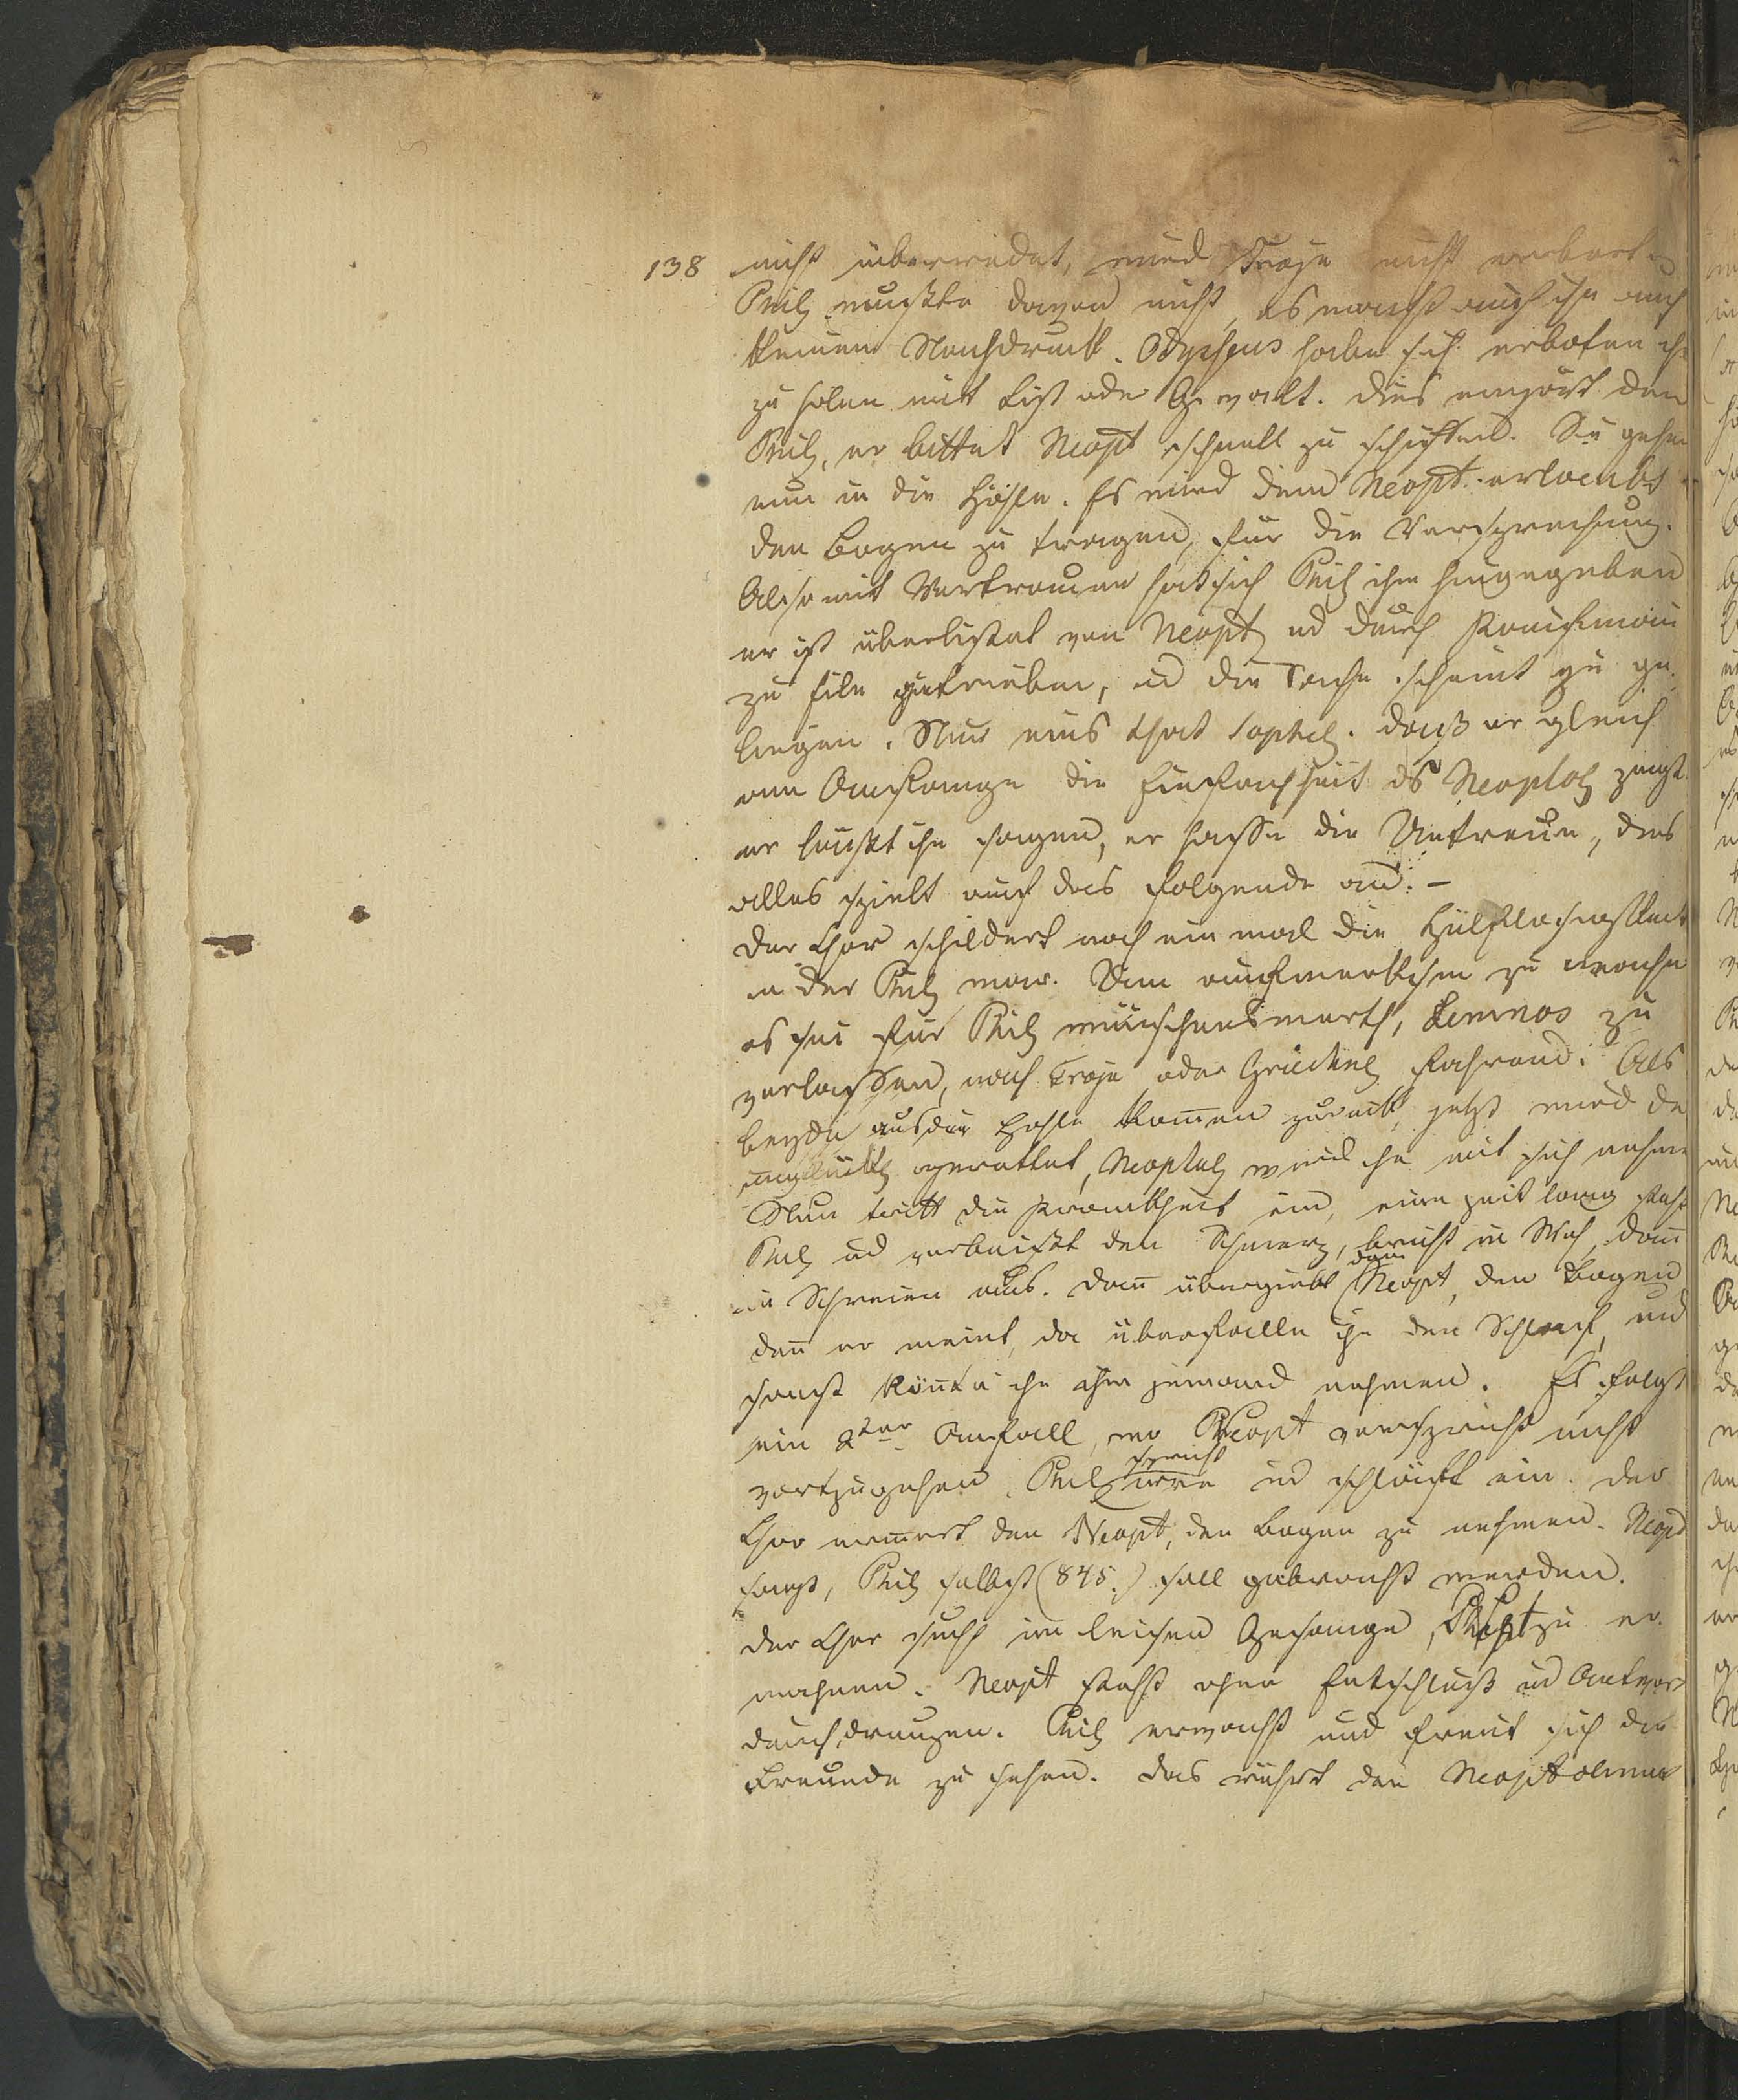 138 nicht überwindet, wird Troja nicht erobert
Phil. wußte davon nicht, es macht auf ihn auch
keinen Nachdruck. Odysseus habe sich erboten ihn
zu holen mit List oder Gewalt. Dies empört den
Phil, er bittet Neopt schnell zu schiffen. Sie gehen
nun in die Höhle. Es wird dem Neopt. erlaubt
den Bogen zu tragen, für die Versprechung.
Also mit Vertrauen hat sich Phil ihm hingegeben
er ist überlistet von Neopt ud durch Kaufmann
zu Eile getrieben, ud die Sache scheint zu ge-
lingen. Nur eins that Sophcl. daß er gleich
am Anfange die Einfachheit ds Neoptol zeigt
er läußt ihn sagen, er hasse die Untreue, dies
alles spielt auf das folgende an. –
Der Chor schildert noch ein mal die Hülflosigkeit
in der Phil war. Um aufmerksam zu machen
es sei für Phil wünschenswerth, Lemnos zu
verlassen, nach Troja oder Griechel fahrend. Als
beyde aus der Hohle kom̄en zurück, jetzt wird de
ungluckl gerettet, Neoptol wird ihn mit sich nehmen
Nun tritt die Krankheit ein, eine Zeit lang steht
Phil ud verbeißt den Schmerz, bricht in Weh, dan̄
in Schreien aus. Dan̄ übergiebt dem Neopt, den Bogen
den̄ er meint, da überfalle ihn der Schlaf, und
sonst kön̄te ihn ihm jemand nehmen. Es folgt
ein 2ter Anfall, wo Neopt verspricht nicht
vortzugehen Phil spricht irre ud schläft ein. Der
Chor ermuntert den Neopt, den Bogen zu nehmen. Neopt
sagt, Phil selbst (845.) soll gebraucht werden.
Der Chor sucht im leisen Gesange, Neopt zu er-
mahnen. Neopt steht ohne Entschluß ud Antwort
Phil erwacht und freut sich die
Freunde zu sehen. Das rührt den Neoptolemus